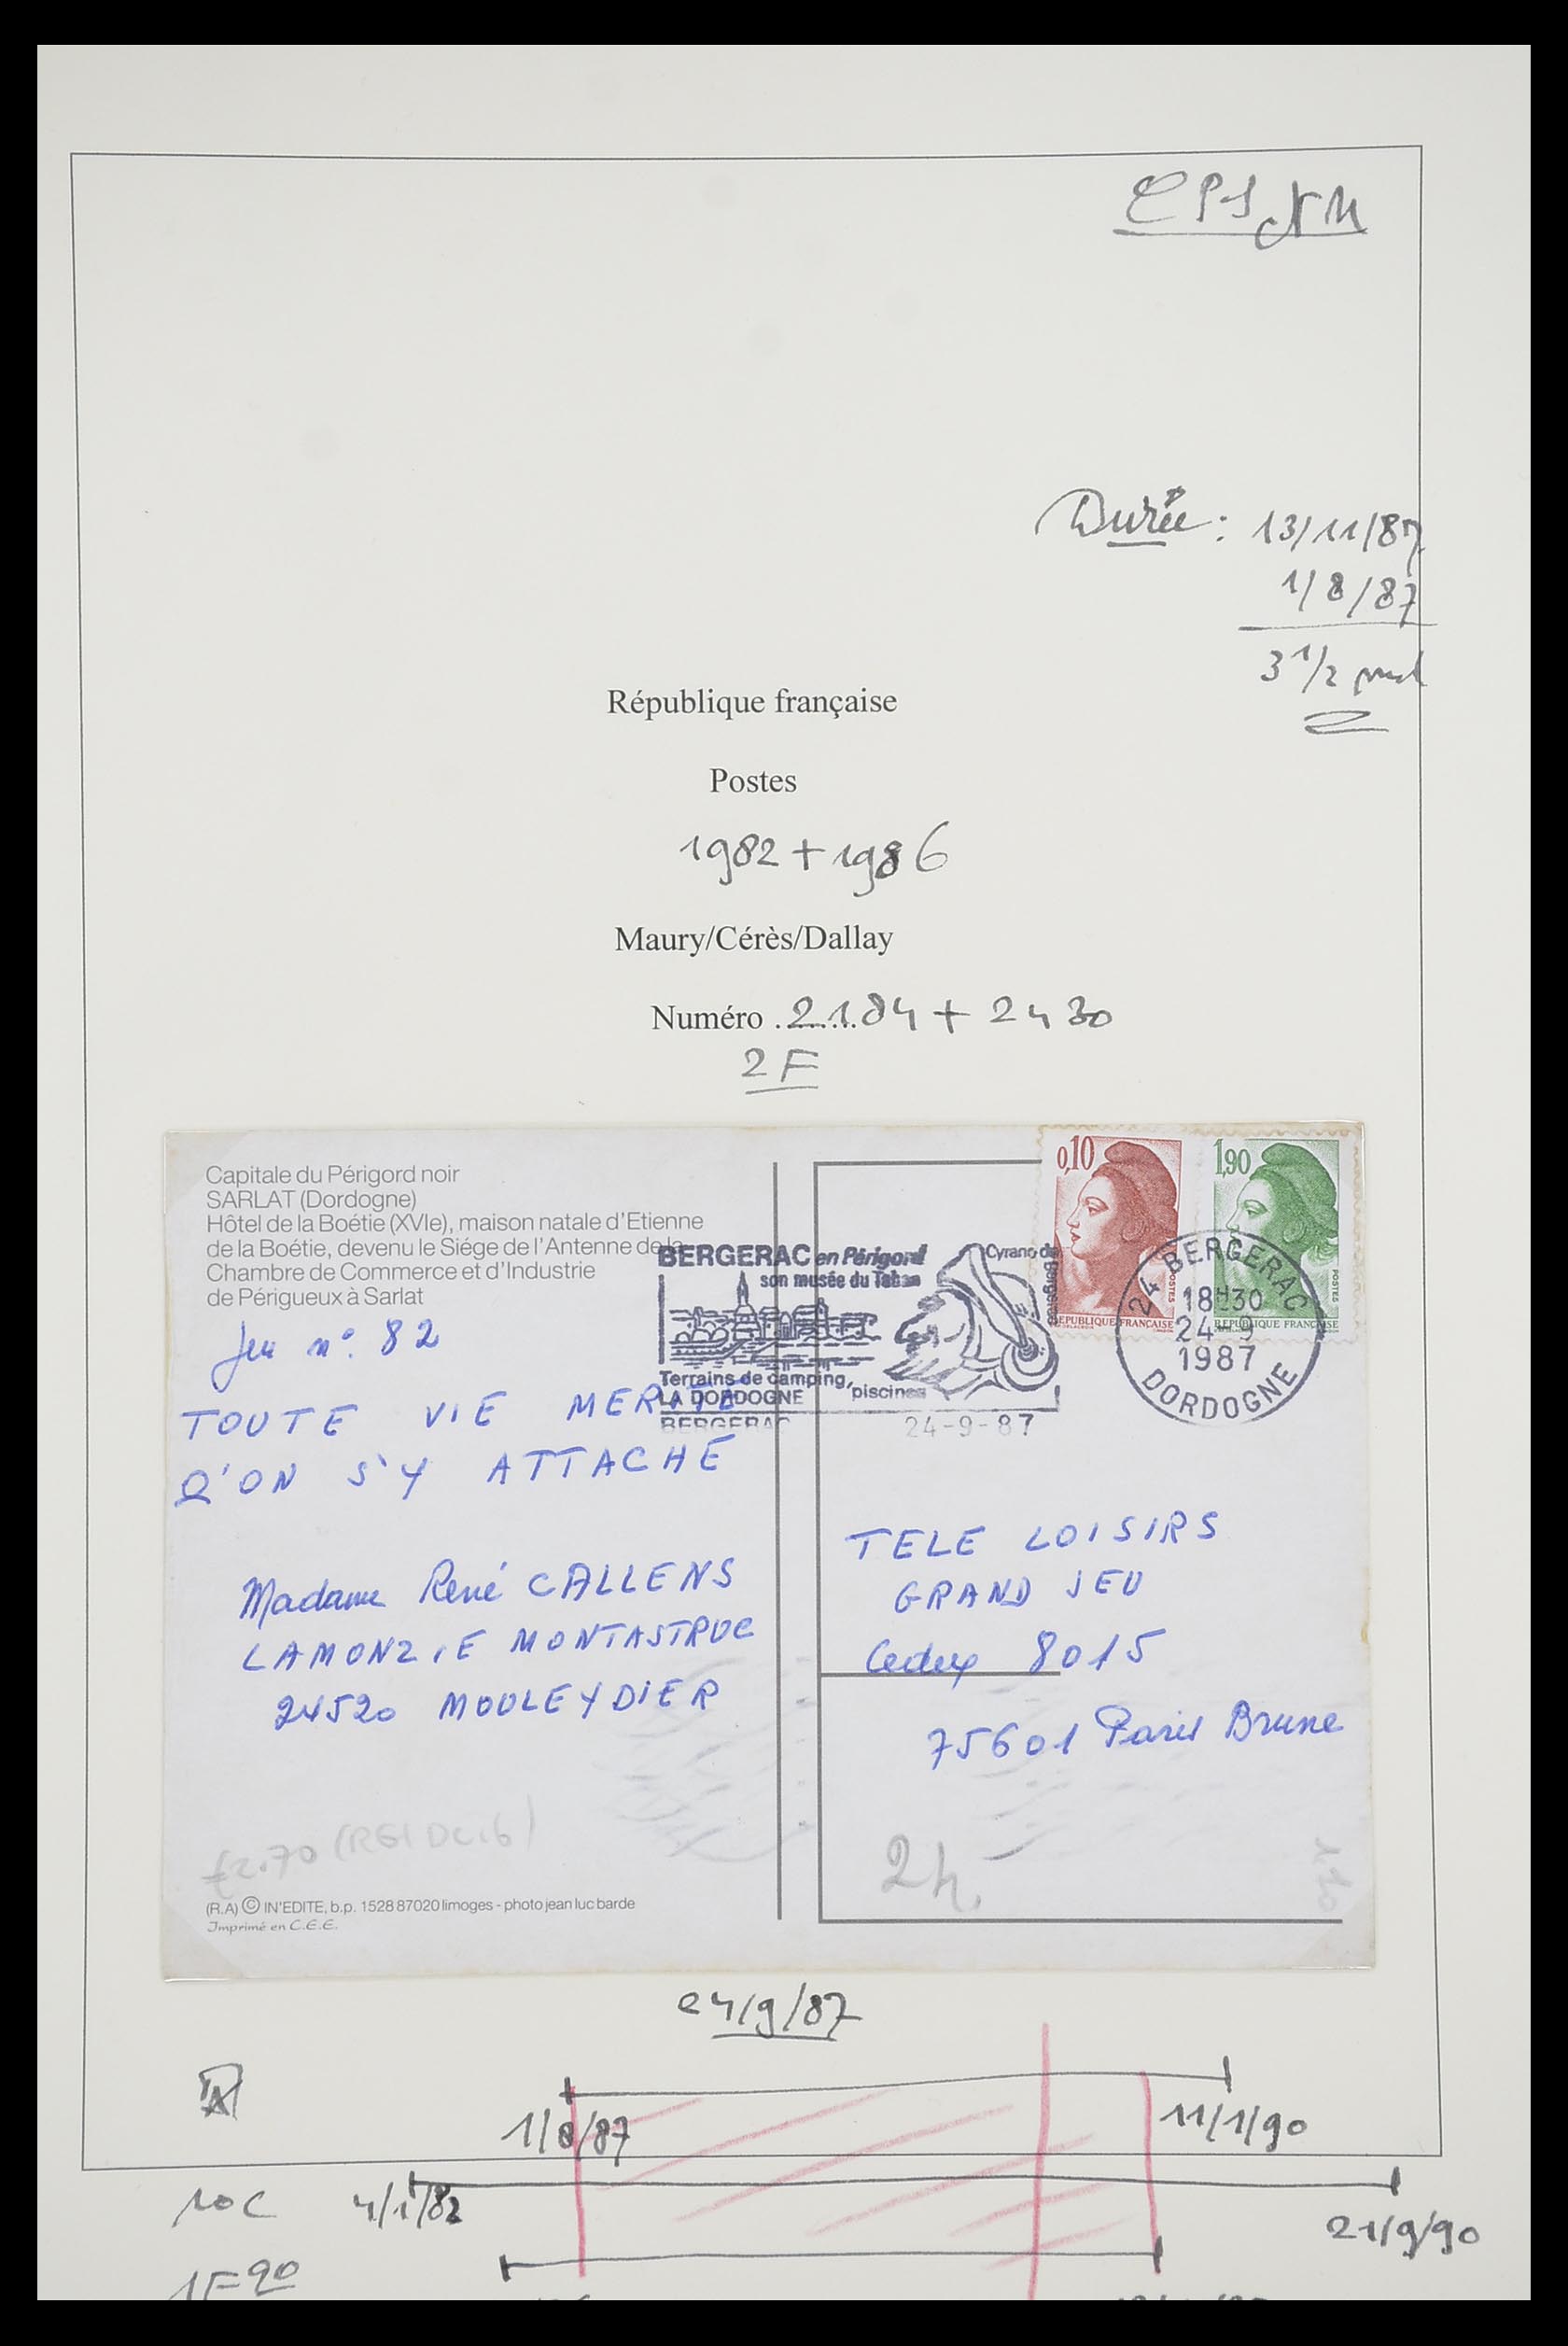 Durée : 13/11/87
1/8/87
3 1/2
République française
Postes
1982 + 1986
Maury/Cérès/Dallay
Numéro ........ 2184 + 2430
2F
Capitale du Périgord noir
SARLAT (Dordogne)
Hôtel de la Boétie (XVIe), maison natale d'Etienne
de la Boétie, devenu le Siége de l'Antenne de la
Chambre de Commerce et d'Industrie
de Périgueux à Sarlat
0,10
POSTES
REPUBLIQUE FRANCAISE
1,90
POSTES
REPUBLIQUE FRANCAISE
BERGERAC en Périgord
son musée du Tabac
Cyrano de Bergerac
Terrains de camping, piscines
LA DORDOGNE
BERGERAC 24-9-87
24 BERGERAC
18H30
24-9
1987
DORDOGNE
Jeu n° 82
TOUTE VIE MERITE
Q'ON S'Y ATTACHE
Madame René CALLENS
LAMONZIE MONTASTRUC
24520 MOULEYDIER
TELE LOISIRS
GRAND JEU
Cedex 8015
75601 Paris Brune
€2.70
2h.
1.90
(R.A) © IN'EDITE, b.p. 1528 87020 limoges - photo jean luc barde
Imprimé en C.E.E.
24/9/87
1/8/87 11/1/90
10C 4/1/82 21/9/90
1F90